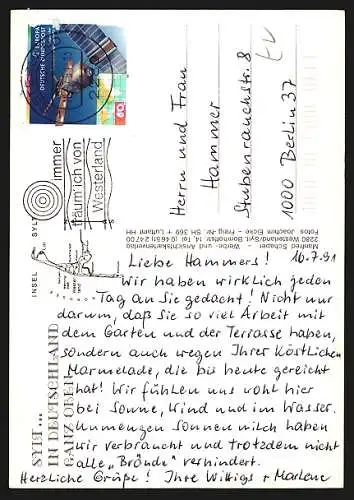 Liebe Hammers! 16.7.91
Wir haben wirklich jeden
Tag an Sie gedacht! Nicht nur
darum, daß Sie so viel Arbeit mit
dem Garten und der Terrasse haben,
sondern auch wegen Ihrer köstlichen
Marmelade, die bis heute gereicht
hat! Wir fühlen uns wohl hier
bei Sonne, Wind und im Wasser.
Unmengen Sonnenmilch haben
wir verbraucht und trotzdem nicht
alle „Brände" verhindert.
Herzliche Grüße! Ihre Wittigs + Marlene
Herrn und Frau
Hammer
Stubenrauchstr. 8
1000 Berlin 37
EUROPA
DEUTSCHE BUNDESPOST
60
immer
träum' ich von
Westerland
INSEL SYLT
Manfred Schaper - Werbe- u. Ansichtskartenverlag
2280 Westerland/Sylt, Bomhoffstr. 
Fotos Joachim Eicke · Freig.-Nr. SH 369 + Luftamt HH
SYLT...
IN DEUTSCHLAND
GANZ OBEN